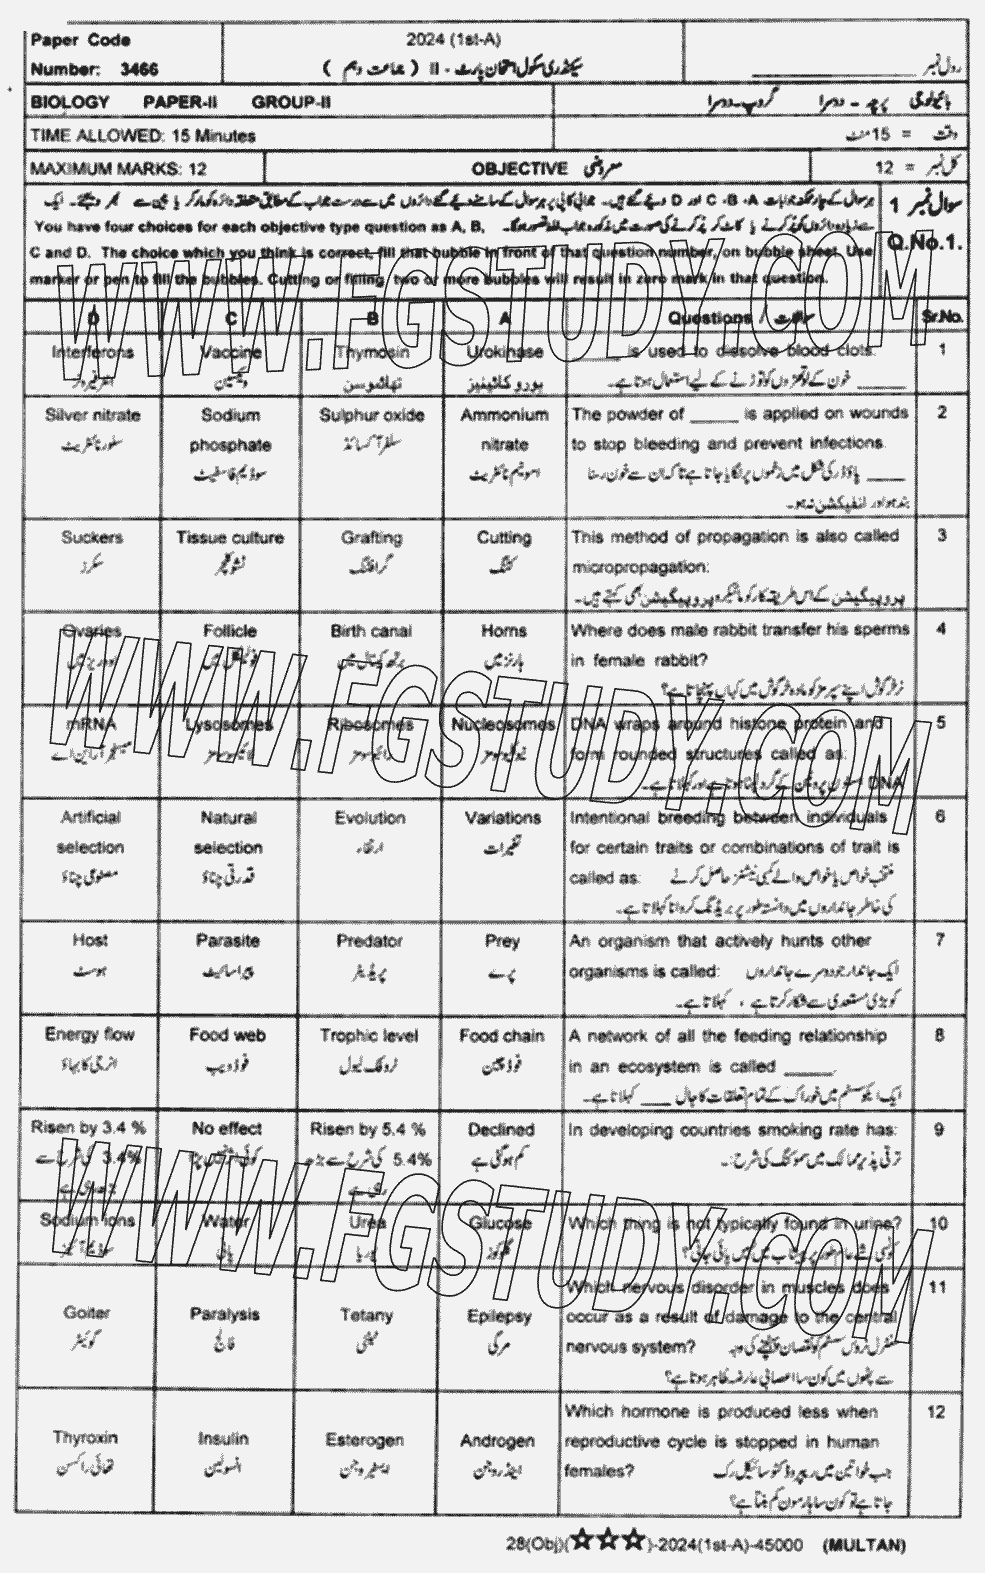 Paper Code
Number: 3466
2024 (1st-A)
سیکنڈری سکول امتحان پارٹ - II ( جماعت دہم )
رول نمبر
BIOLOGY PAPER-II GROUP-II
بائیولوجی پرچہ - دوسرا گروپ - دوسرا
TIME ALLOWED: 15 Minutes
وقت = 15 منٹ
MAXIMUM MARKS: 12
OBJECTIVE معروضی
کل نمبر = 12
سوال نمبر 1
Q.No.1.
You have four choices for each objective type question as A, B,
C and D. The choice which you think is correct, fill that bubble in front of that question number, on bubble sheet. Use
marker or pen to fill the bubbles. Cutting or filling two or more bubbles will result in zero mark in that question.
D C B A Questions / سوالات Sr.No.
Interferons Vaccine Thymosin Urokinase _____ is used to dissolve blood clots. 1
انٹرفیرونز ویکسین تھائموسن یورو کائینیز _____ خون کے لوتھڑوں کو توڑنے کے لیے استعمال ہوتا ہے۔
Silver nitrate Sodium Sulphur oxide Ammonium The powder of _____ is applied on wounds 2
phosphate nitrate to stop bleeding and prevent infections.
سلور نائٹریٹ سوڈیم فاسفیٹ سلفر آکسائڈ امونیم نائٹریٹ _____ پاؤڈر کی شکل میں زخموں پر لگایا جاتا ہے تاکہ ان سے خون رسنا
بند ہو اور انفیکشن نہ ہو۔
Suckers Tissue culture Grafting Cutting This method of propagation is also called 3
micropropagation:
سکرز ٹشو کلچر گرافٹنگ کٹنگ
پروپیگیشن کے اس طریقہ کار کو مائیکرو پروپیگیشن بھی کہتے ہیں۔
Ovaries Follicle Birth canal Horns Where does male rabbit transfer his sperms 4
in female rabbit?
برتھ کینال میں ہارنز میں
نر خرگوش اپنے سپرمز کو مادہ خرگوش میں کہاں پہنچاتا ہے؟
mRNA Lysosomes Ribosomes Nucleosomes DNA wraps around histone protein and 5
form rounded structures called as:
DNA ہسٹون پروٹین کے گرد لپٹا ہوتا ہے اور کہلاتا ہے۔
Artificial Natural Evolution Variations Intentional breeding between individuals 6
selection selection for certain traits or combinations of trait is
مصنوعی چناؤ قدرتی چناؤ ارتقاء تغیرات
called as:
کی خاطر جانداروں میں دانستہ طور پر بریڈنگ کروانا کہلاتا ہے۔
Host Parasite Predator Prey An organism that actively hunts other 7
ہوسٹ پیراسائیٹ پریڈیٹر پرے organisms is called: ایک جاندار جو دوسرے جانداروں
کو بڑی مستعدی سے شکار کرتا ہے ، کہلاتا ہے۔
Energy flow Food web Trophic level Food chain A network of all the feeding relationship 8
انرجی کا بہاؤ فوڈ ویب ٹروفک لیول فوڈ چین in an ecosystem is called _____.
ایک ایکوسسٹم میں خوراک کے تمام تعلقات کا جال ____ کہلاتا ہے۔
Risen by 3.4 % No effect Risen by 5.4 % Declined In developing countries smoking rate has: 9
3.4% کی شرح سے 5.4% کی شرح سے بڑھ کم ہو گئی ہے ترقی پذیر ممالک میں سموکنگ کی شرح:۔
رہی ہے
Sodium ions Water Urea Glucose Which thing is not typically found in urine? 10
پانی یوریا گلوکوز
Which nervous disorder in muscles does 11
Goiter Paralysis Tetany Epilepsy occur as a result of damage to the central
گوئٹر فالج ٹیٹنی مرگی nervous system?
سے پٹھوں میں کون سا اعصابی عارضہ ظاہر ہوتا ہے؟
Which hormone is produced less when 12
Thyroxin Insulin Esterogen Androgen reproductive cycle is stopped in human
تھائی راکسن انسولین ایسٹروجن اینڈروجن females?
جاتا ہے تو کون سا ہارمون کم بنتا ہے؟
28(Obj)(☆☆☆)-2024(1st-A)-45000 (MULTAN)
WWW.FGSTUDY.COM
WWW.FGSTUDY.COM
WWW.FGSTUDY.COM